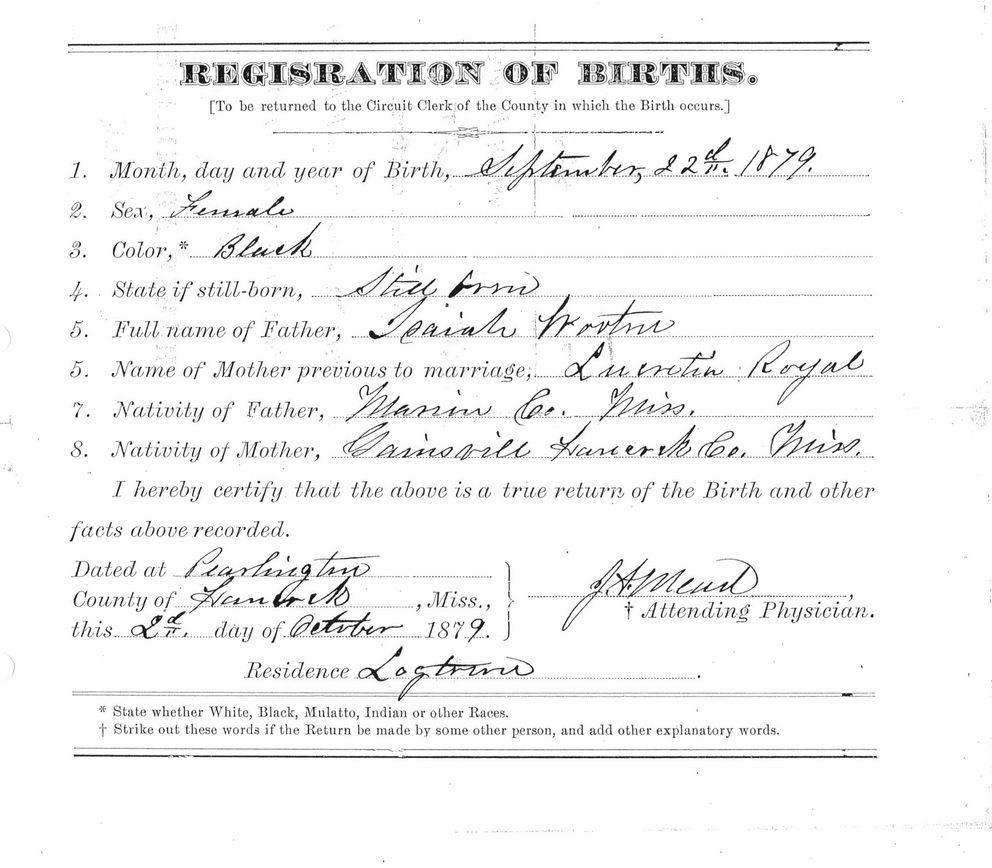 REGISRATION OF BIRTHS.
[To be returned to the Circuit Clerk of the County in which the Birth occurs.]
1. Month, day and year of Birth, September, 22d. 1879.
2. Sex, Female
3. Color,* Black
4. State if still-born, Still born
5. Full name of Father, Isaiah Wooten
5. Name of Mother previous to marriage, Lucretia Royal
7. Nativity of Father, Marion Co. Miss.
8. Nativity of Mother, Gainsvill Hancock Co. Miss.
I hereby certify that the above is a true return of the Birth and other
facts above recorded.
Dated at Pearlington
County of Hancock, Miss.,
this 2d. day of October 1879.
J. A. Mead,
† Attending Physician.
Residence Logtown.
* State whether White, Black, Mulatto, Indian or other Races.
† Strike out these words if the Return be made by some other person, and add other explanatory words.